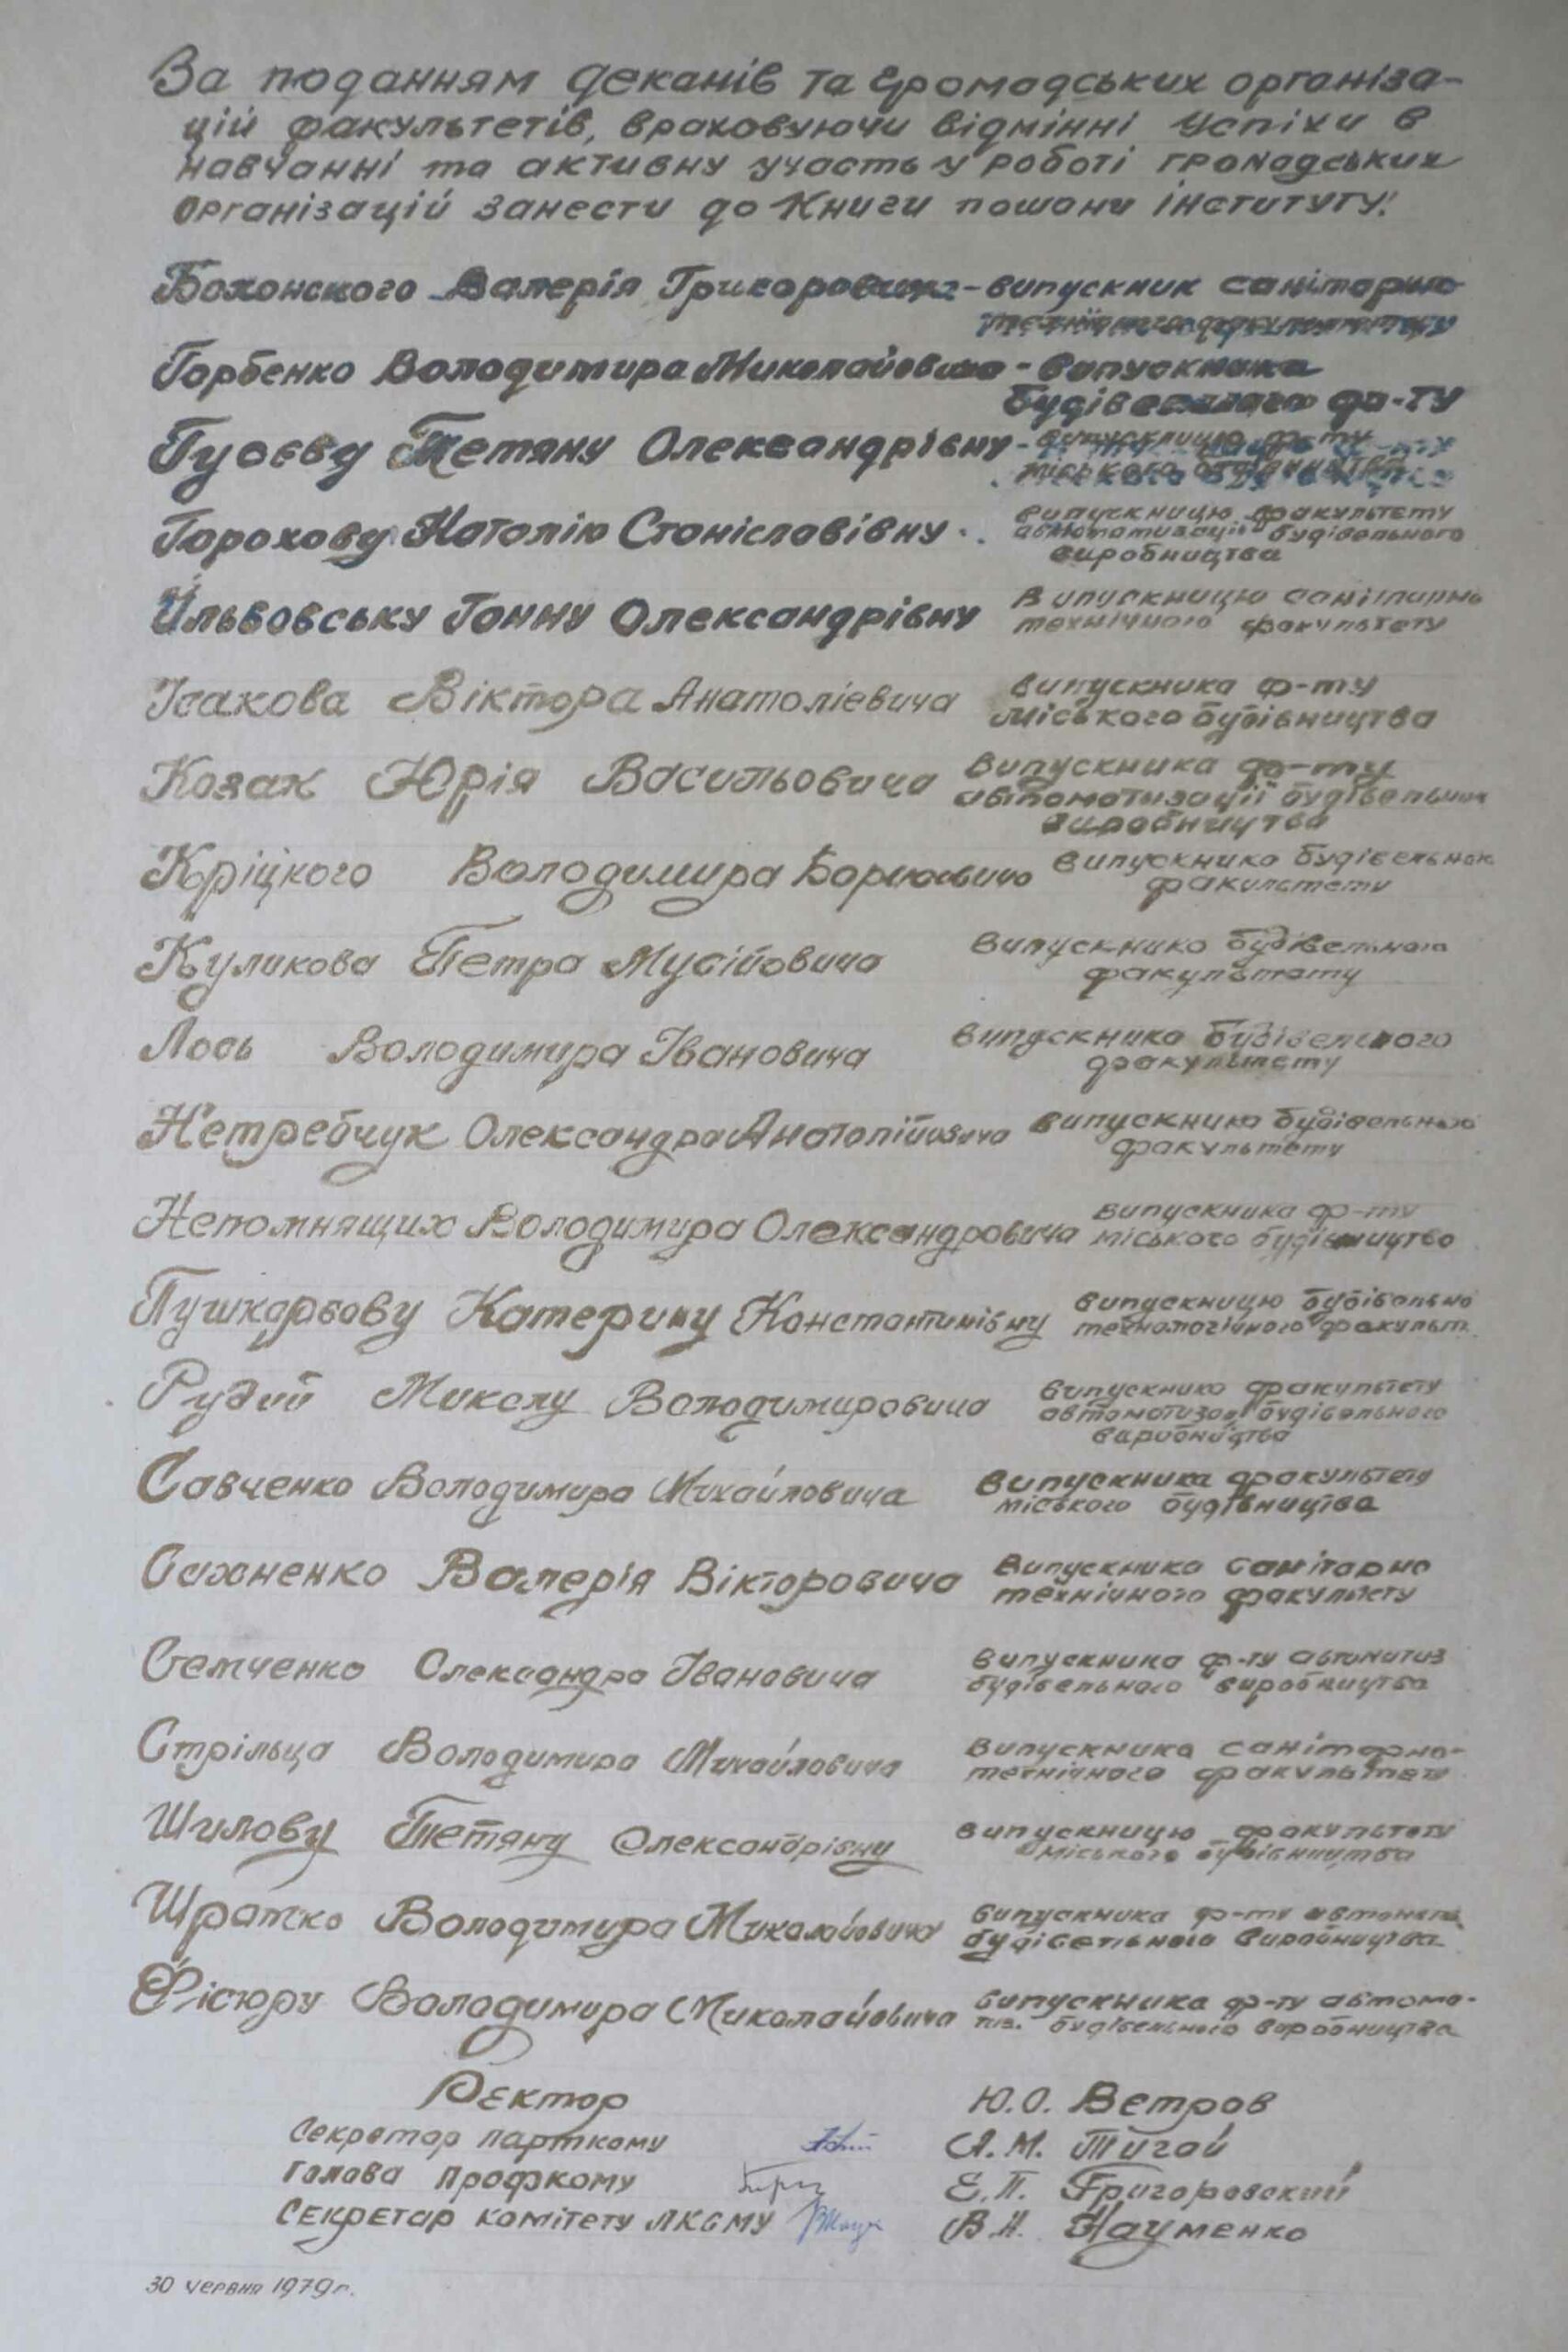 За поданням деканів та громадських організа-
цій факультетів, враховуючи відмінні успіхи в
навчанні та активну участь у роботі громадських
організацій занести до Книги пошани інституту:
Бохонского Валерія Григоровича - випускник санітарно
технічного факультету
Горбенко Володимира Миколайовича - випускника
будівельного ф-ту
Гусєву Тетяну Олександрівну - випускницю ф-ту
міського будівництва
Горохову Наталію Станіславівну - випускницю факультету
автоматизації будівельного
виробництва
Ільвовську Ганну Олександрівну випускницю санітарно
технічного факультету
Ісакова Віктора Анатолієвича випускника ф-ту
міського будівництва
Козак Юрія Васильовича випускника ф-ту
автоматизації будівельних
виробництва
Кріцкого Володимира Борисовича випускника будівельног
факультету
Куликова Петра Мусійовича випускника будівельного
факультету
Лось Володимира Івановича випускника будівельного
факультету
Нетребчук Олександра Анатолійовича випускника будівельного
факультету
Непомнящих Володимира Олександровича випускника ф-ту
міського будівництва
Пушкарьову Катерину Константинівну випускницю будівельно
технологічного факульт.
Рудий Миколу Володимировича випускника факультету
автоматизац. будівельного
виробництва
Савченко Володимира Михайловича випускника факультету
міського будівництва
Сахненко Валерія Вікторовича випускника санітарно
технічного факультету
Семченко Олександра Івановича випускника ф-ту автоматиз
будівельного виробництва
Стрільца Володимира Михайловича випускника санітарно-
технічного факультету
Шилову Тетяну Олександрівну випускницю факультету
міського будівництва
Шратко Володимира Миколайовича випускника ф-ту автомати
будівельного виробництва
Фісюру Володимира Миколайовича випускника ф-ту автома-
тиз. будівельного виробництва
Ректор Ю.О. Ветров
Секретар парткому А.М. Тугай
Голова профкому Е.П. Григоровский
Секретар комітету ЛКСМУ В.И. Науменко
30 червня 1979 г.